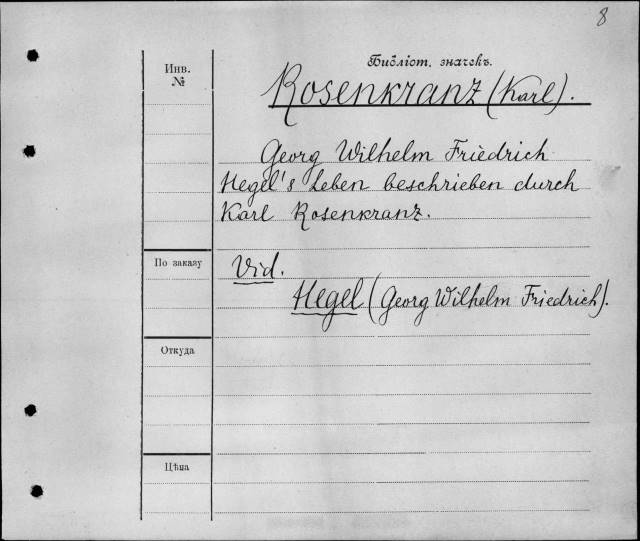 8
Библіот. значекъ.
Инв.
№
Rosenkranz (Karl).
Georg Wilhelm Friedrich
Hegel's Leben beschrieben durch
Karl Rosenkranz.
По заказу
Vid.
Hegel (Georg Wilhelm Friedrich).
Откуда
Цѣна